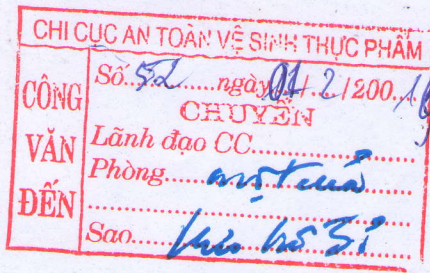 CHI CỤC AN TOÀN VỆ SINH THỰC PHẨM
CÔNG VĂN ĐẾN
Số: 52 ngày 01/2/200 16
CHUYỂN
Lãnh đạo CC
Phòng
Sao lưu hồ sơ